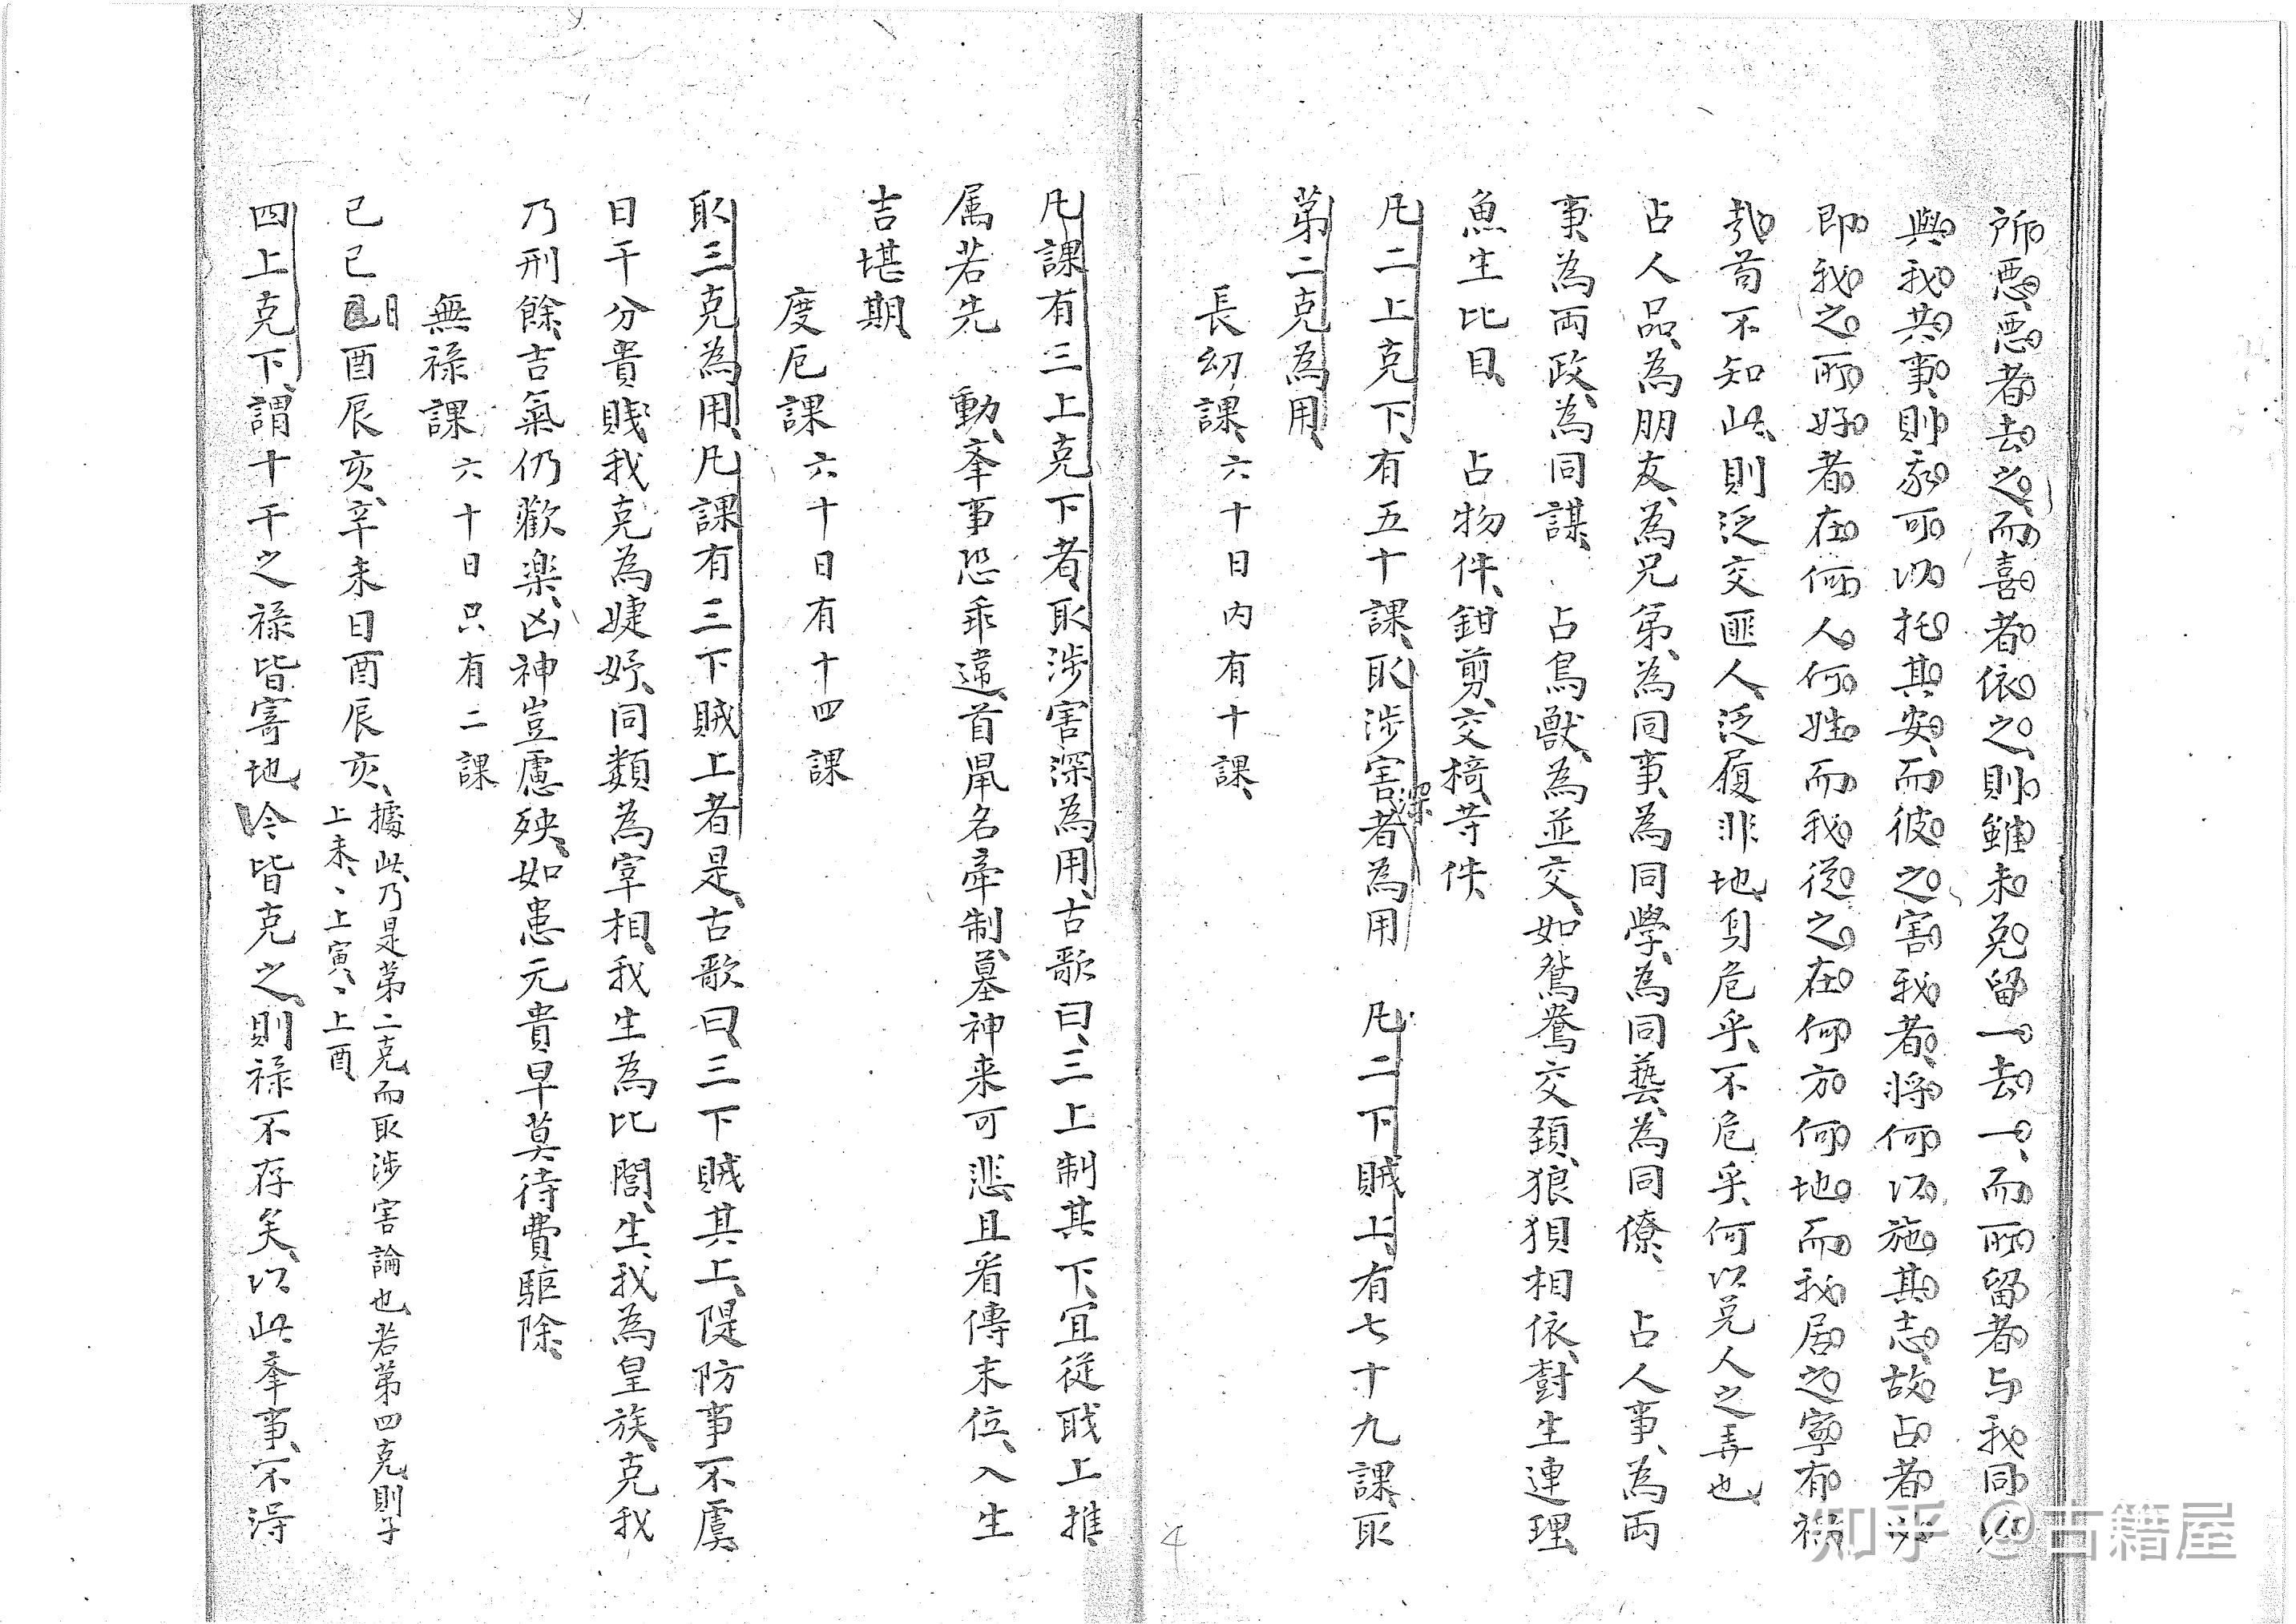 所惡惡者去之而喜者依之、則雖未免留一去一、而所留者与我同心
與我共事則家可以托其安、而彼之害我者、將何以施其志、故占者必
即我之所好者在何人何姓而我從之在何方何地而我居之寧有禍
哉苟不知此、則泛交匪人、泛履非地、身危乎、不危乎、何以免人之弄也、
占人品、為朋友、為兄弟、為同事、為同學、為同藝、為同僚、占人事、為両
事、為両政、為同謀、占鳥獸、為並交、如鴛鴦交頚、狼狽相依、對生連理、
魚生比目、占物件、鉗剪、交椅等件、
凡二上克下、有五十課、取涉害深者為用 凡二下賊上、有七十九課、取
第二克為用、
長幼課、六十日内有十課、
凡課有三上克下者、取涉害深為用、古歌曰、三上制其下、宜從戝上推
属若先 動、夆事恐乖違、首凬名牽制、墓神来可悲、且看傳末位、入生
吉堪期、
度厄課六十日有十四課
取三克為用、凡課有三下賊上者是、古歌曰、三下賊其上、隄防事不虞、
日干分貴賎、我克為婕妤、同類為宰相、我生為比閭、生我為皇族、克我
乃刑餘、吉氣仍歡楽、凶神豈慮殃、如患元貴早、莫待費駆除、
無禄課六十日只有二課
己巳日酉辰亥、辛未日酉辰亥、據此、乃是第二克而取涉害論也、若第四克、則子
上未、、上寅、、上酉、
四上克下、謂十干之禄皆寄地、今皆克之、則禄不存矣、以此夆事、不淂
知乎 @古籍屋